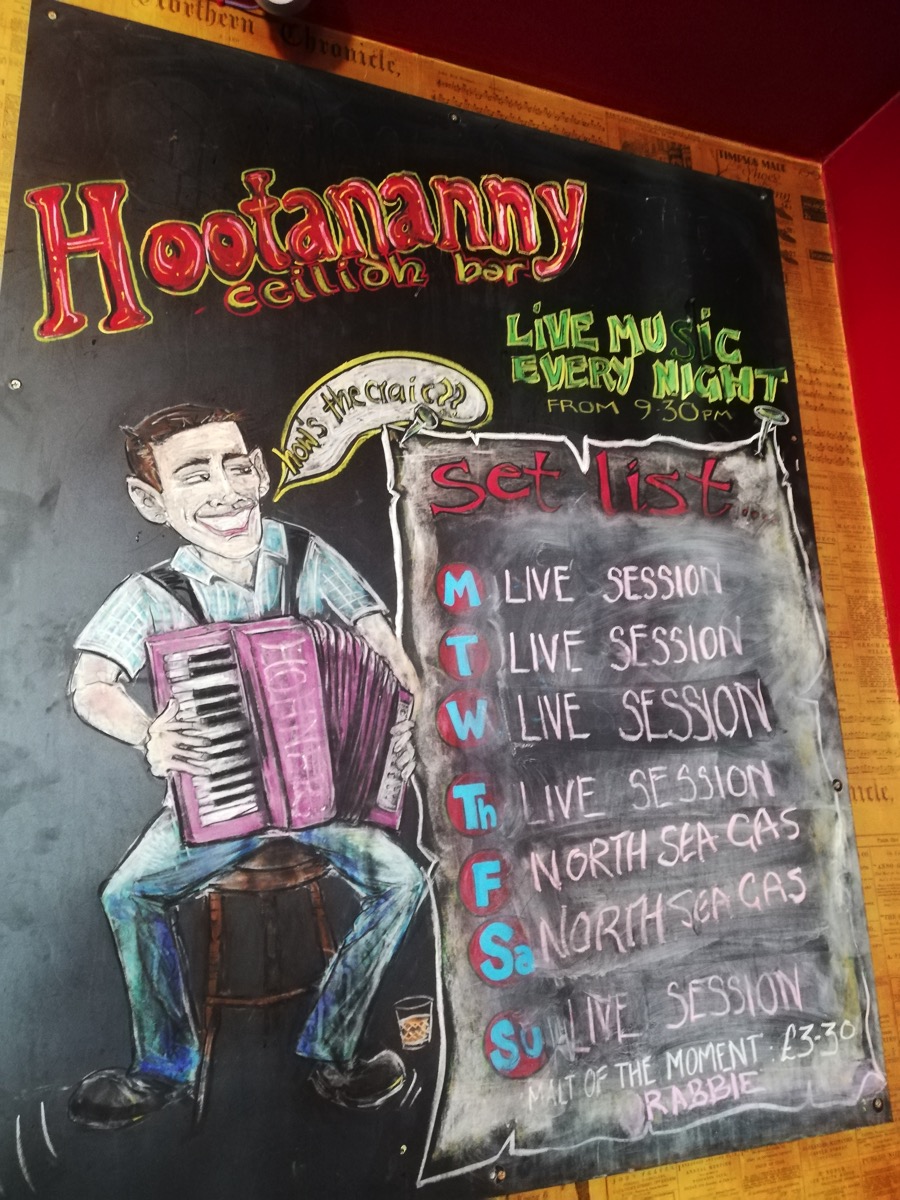 Northern Chronicle,
TIMPSON MADE
Hootananny
ceilidh bar
LiVE MUSiC
EVERY NIGHT
FROM 9.30PM
how's the craic??
set list...
M LIVE SESSION
T LIVE SESSION
W LIVE SESSION
Th LIVE SESSION
F NORTH SEA GAS
Sa NORTH SEA GAS
Su LIVE SESSION
MALT OF THE MOMENT: £3-30
RABBIE
HOHNERS